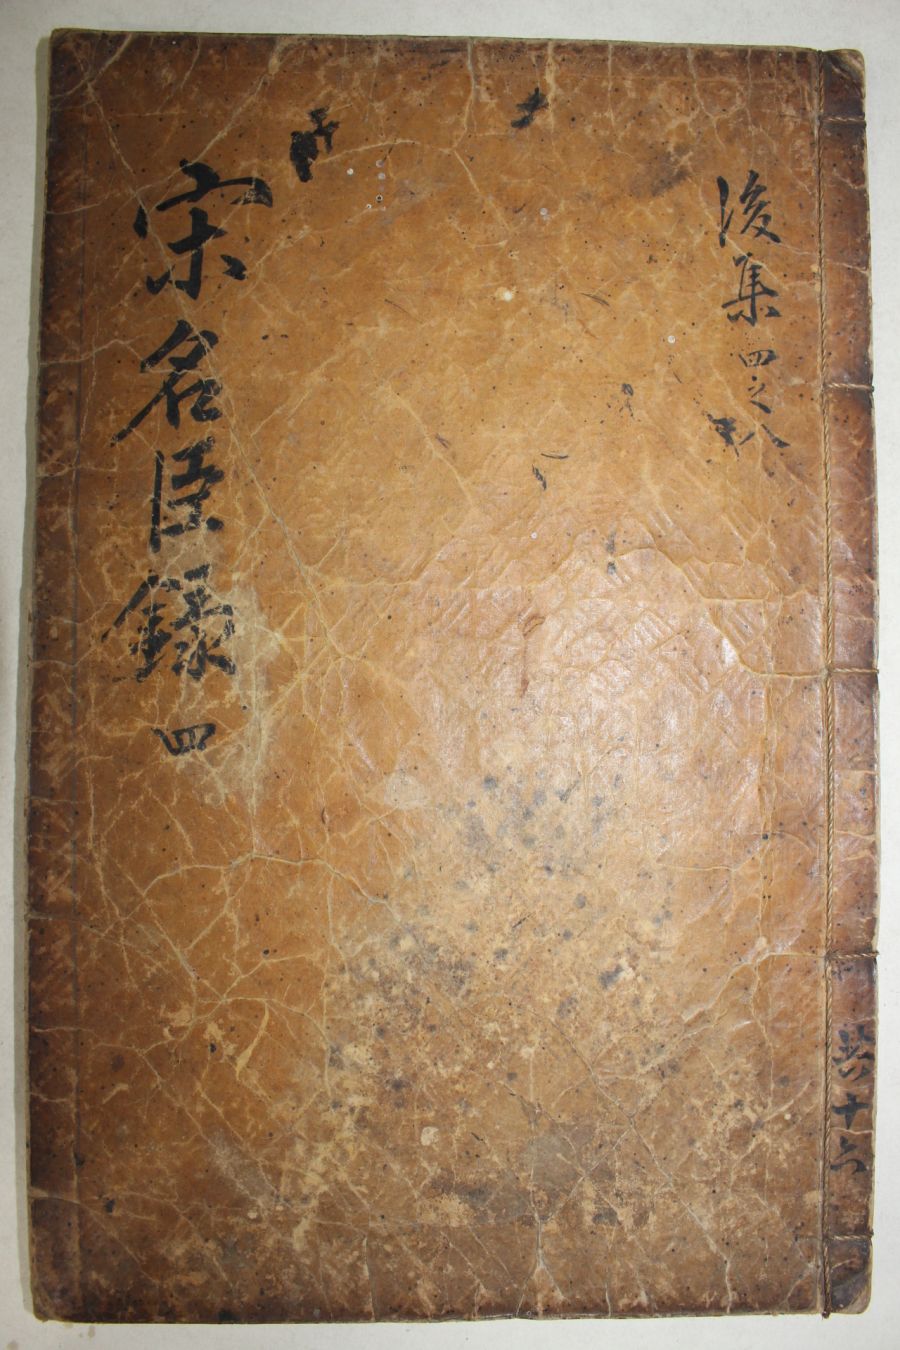 後集 四之八
宋名臣錄 四
共十六